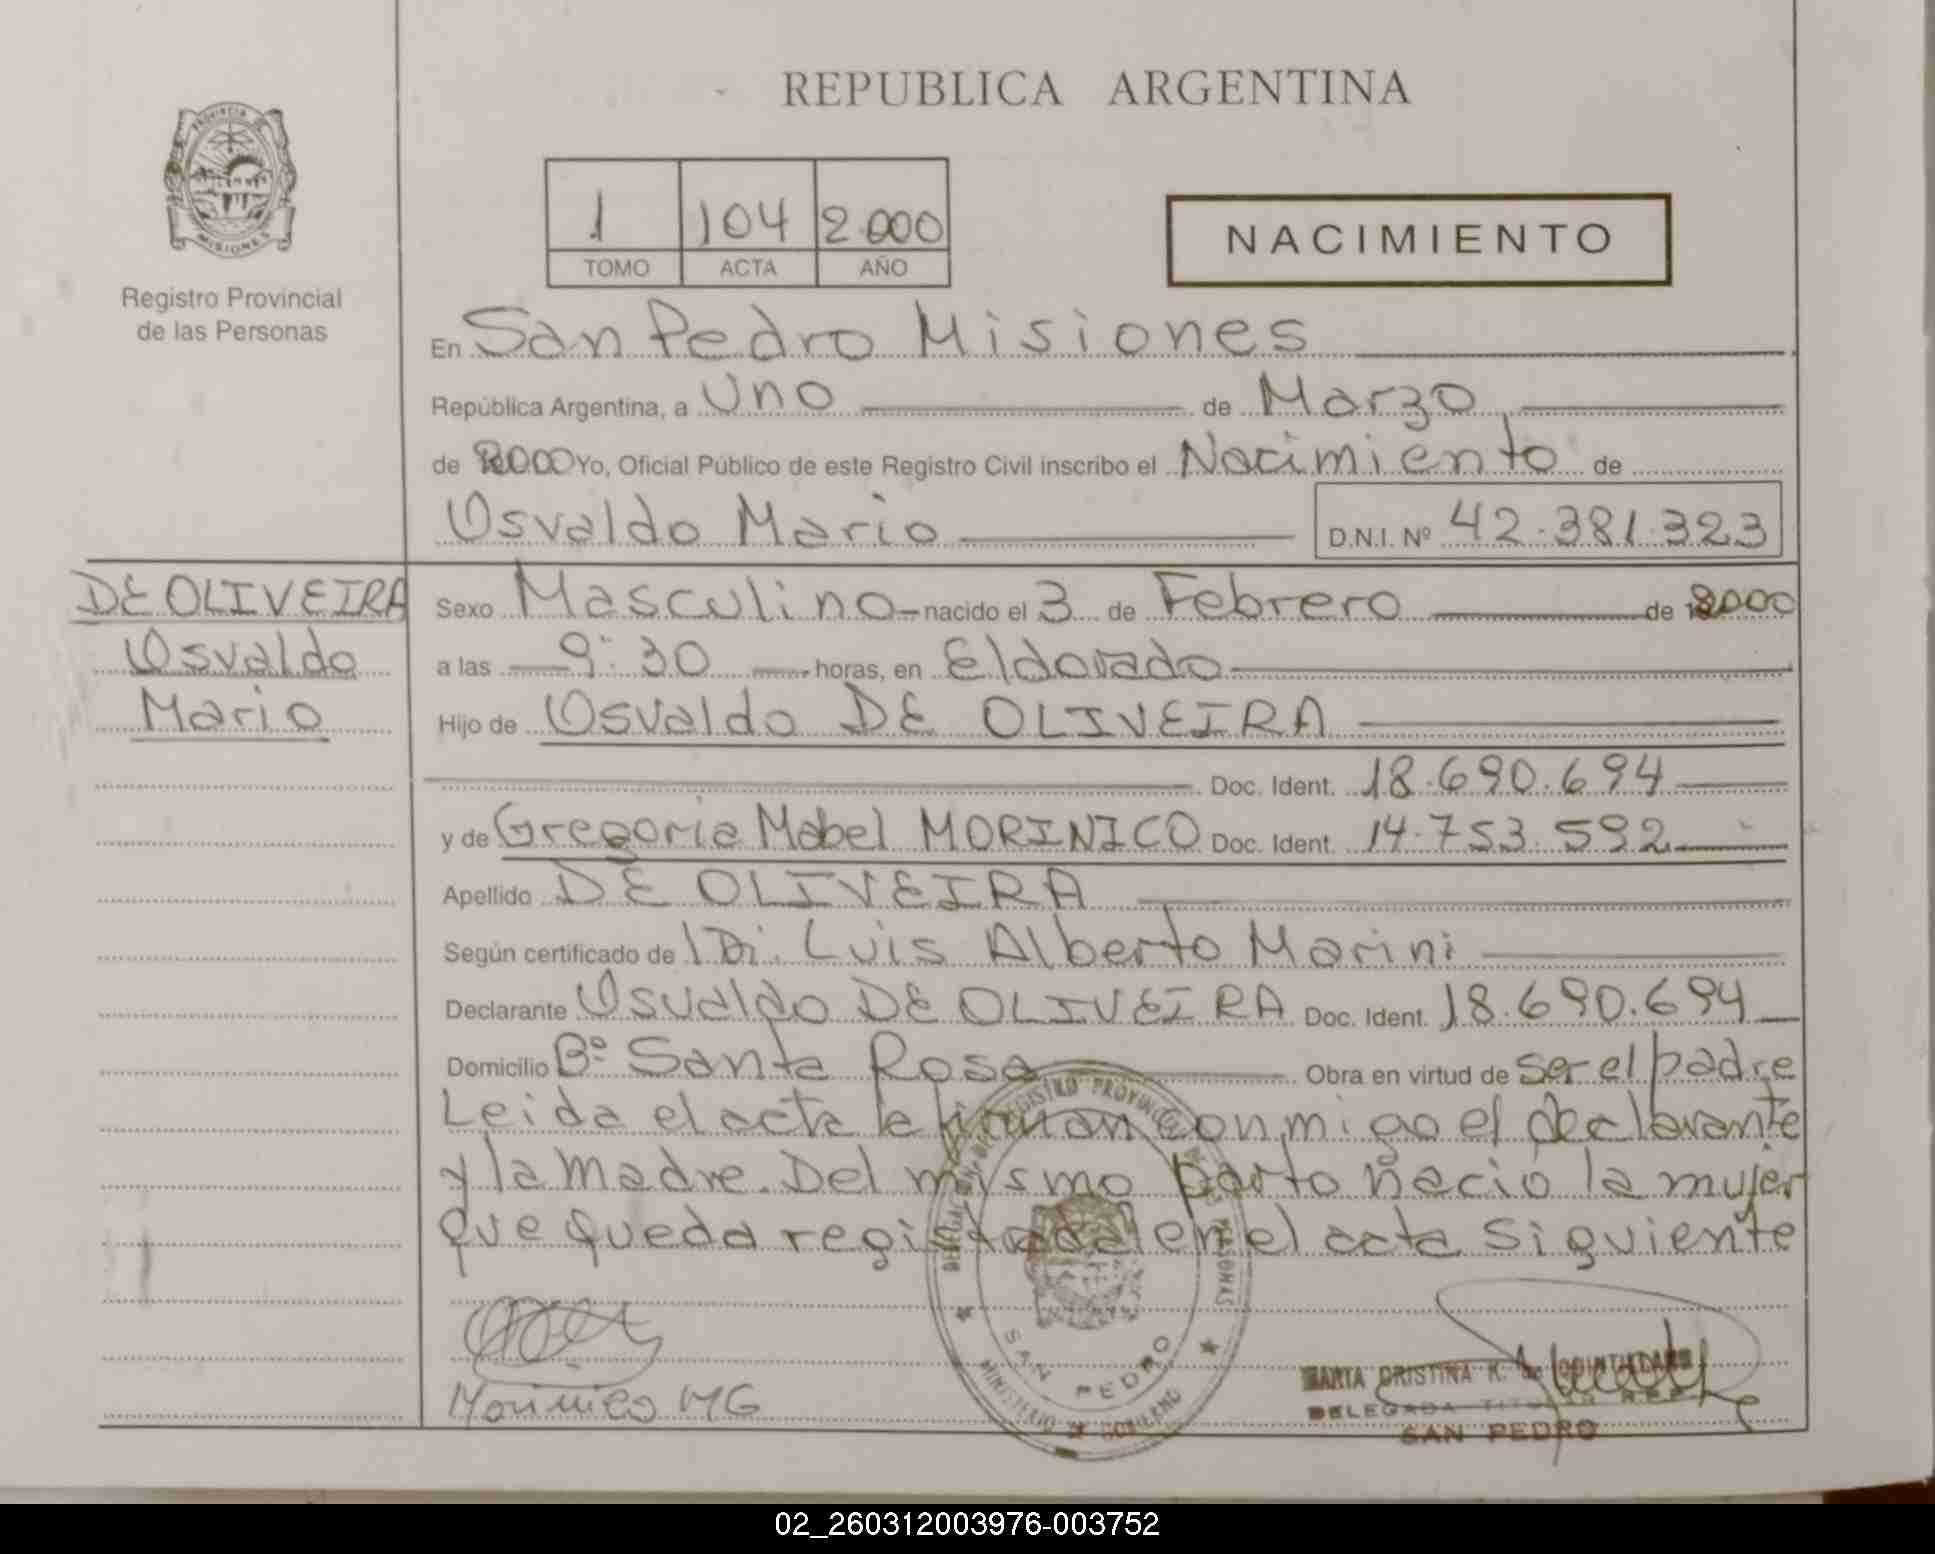 REPUBLICA ARGENTINA
PROVINCIA DE
MISIONES
Registro Provincial
de las Personas
1 104 2.000
TOMO ACTA AÑO
NACIMIENTO
En San Pedro Misiones
República Argentina, a Uno de Marzo
de 2000 Yo, Oficial Público de este Registro Civil inscribo el Nacimiento de
Osvaldo Mario D.N.I. Nº 42.381.323
DE OLIVEIRA
Osvaldo
Mario
Sexo Masculino nacido el 3 de Febrero de 2000
a las 9:30 horas, en Eldorado
Hijo de Osvaldo DE OLIVEIRA
Doc. Ident. 18.690.694
y de Gregoria Mabel MORINICO Doc. Ident. 14.753.592
Apellido DE OLIVEIRA
Según certificado de Luis Alberto Marini
Declarante Osvaldo DE OLIVEIRA Doc. Ident. 18.690.694
Domicilio Bº Santa Rosa Obra en virtud de ser el padre
Leida el acta la firman conmigo el declarante
y la madre. Del mismo parto nacio la mujer
que queda registrada en el acta siguiente
SAN PEDRO
MINISTERIO DE GOBIERNO
Morinico MG
MARIA CRISTINA K. de
DELEGADA TITULAR R.P.P.
SAN PEDRO
02_260312003976-003752